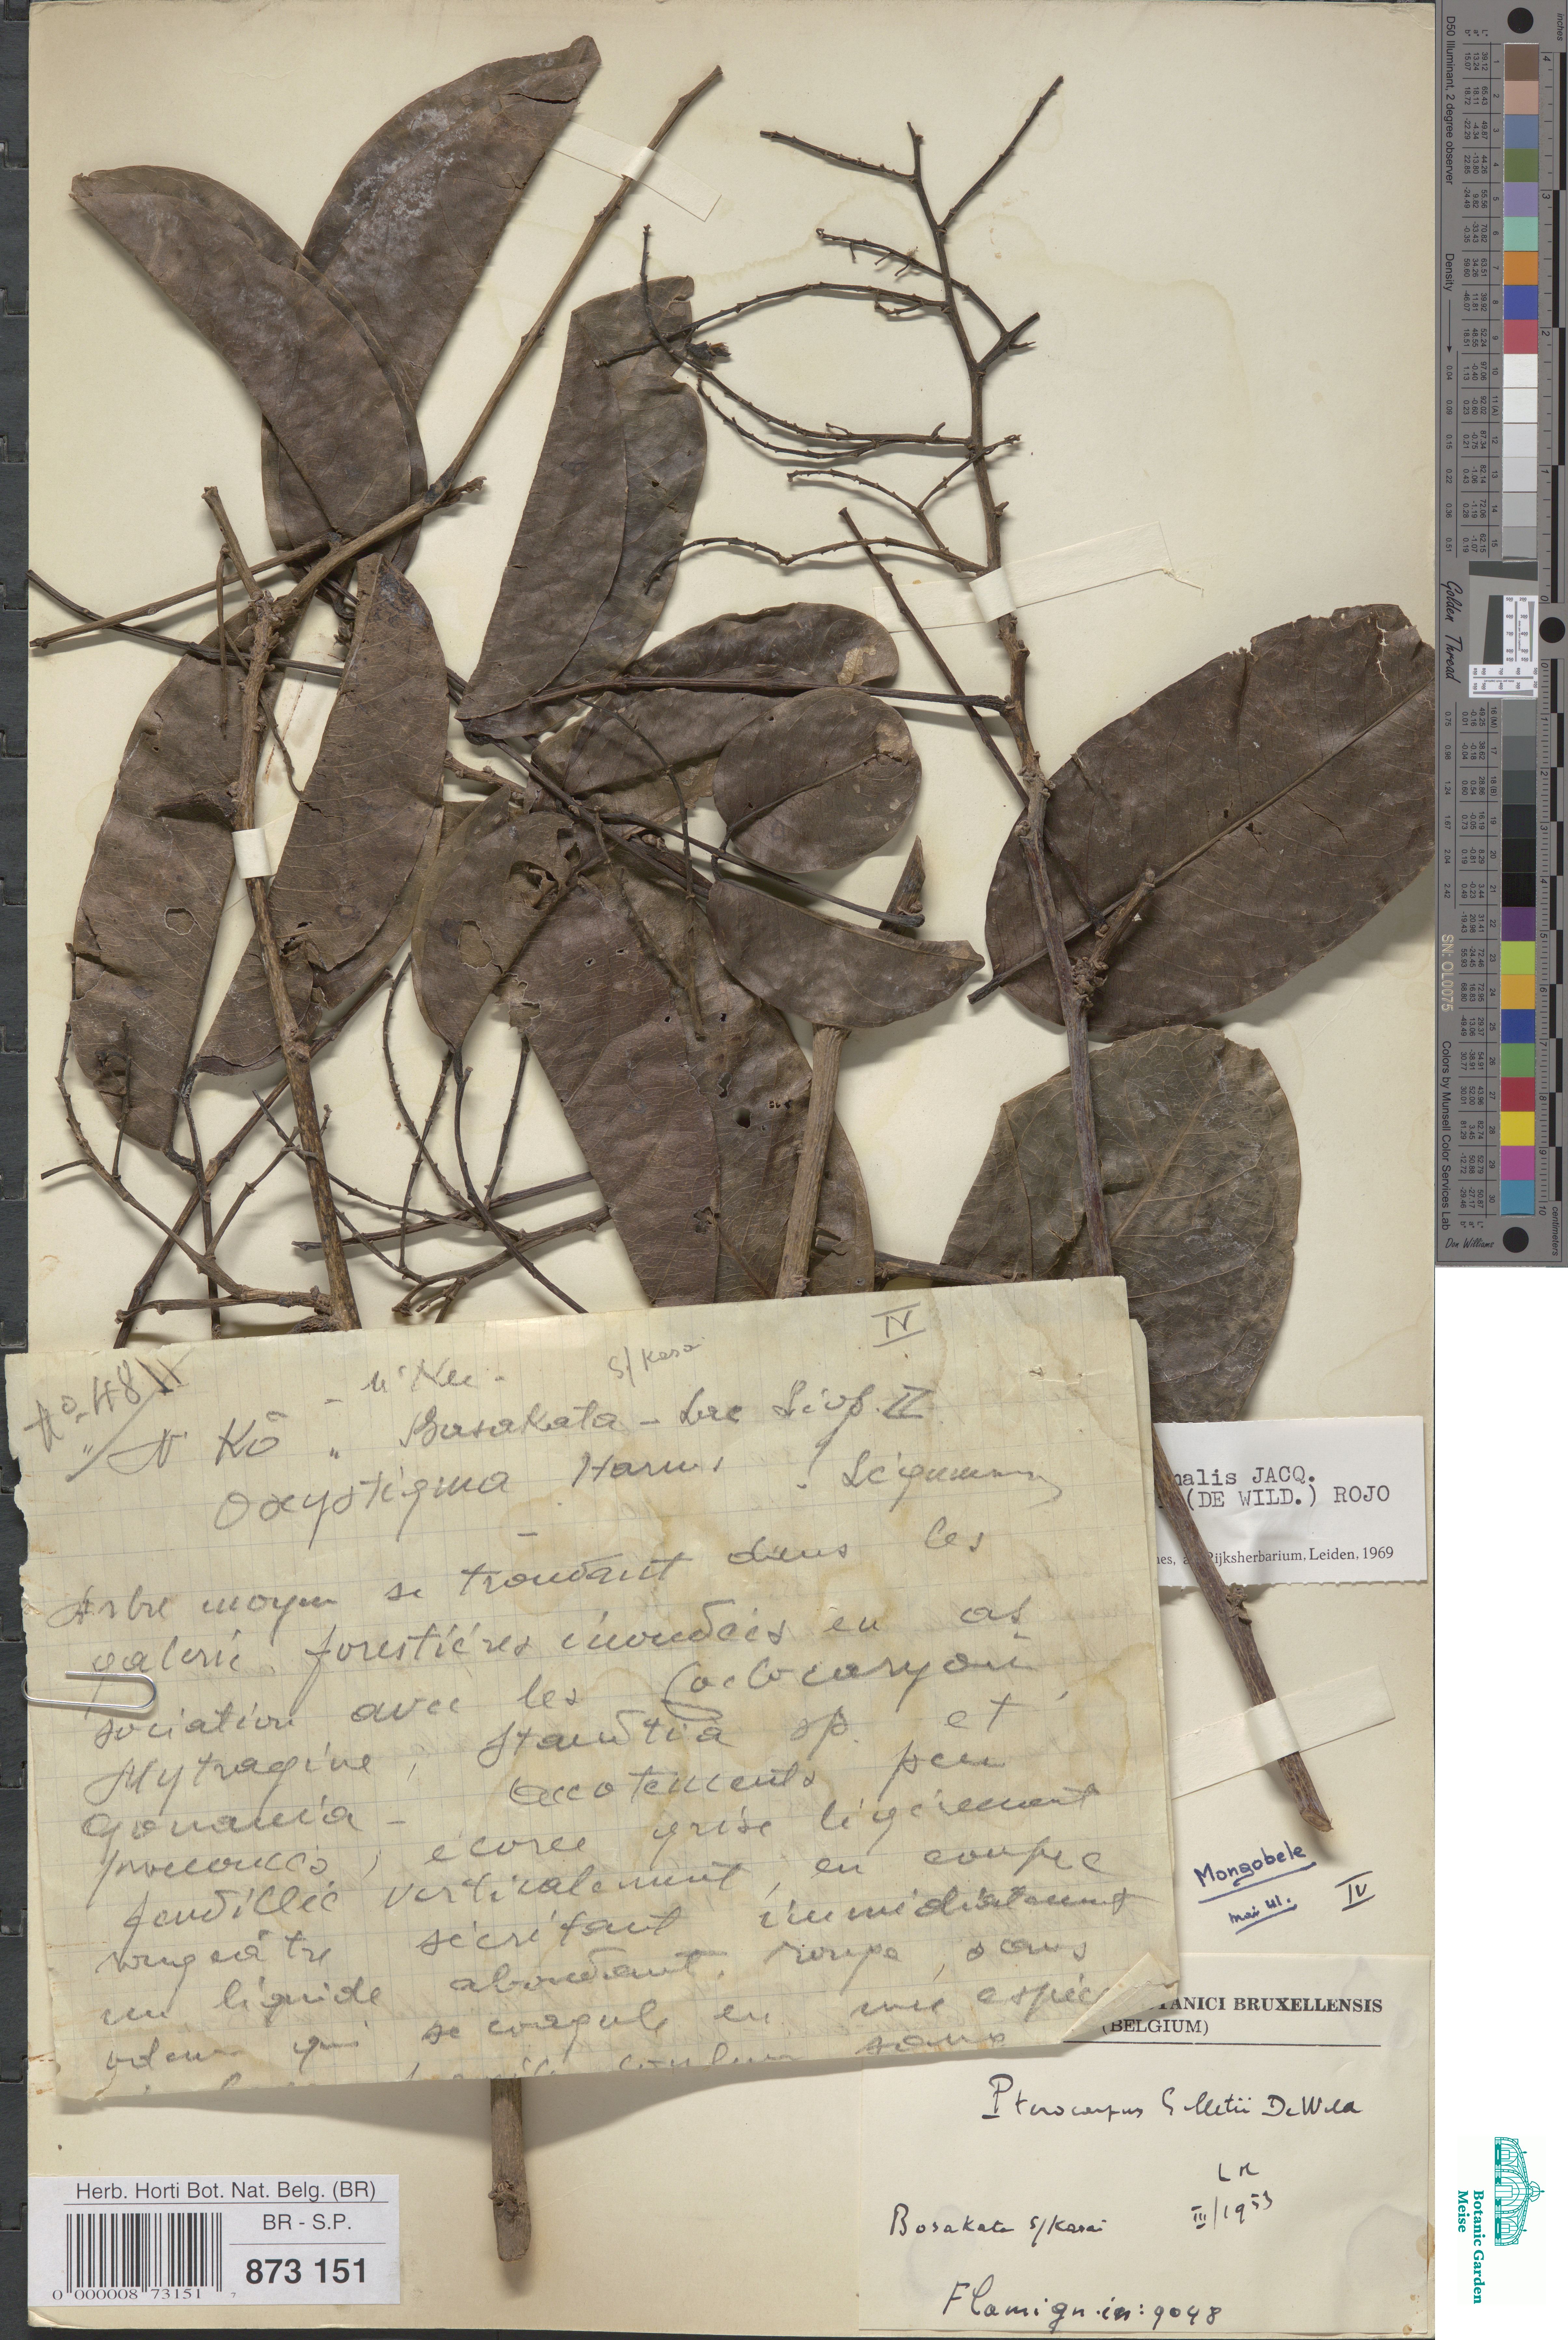 IV
N° 48
- n'Nee - S/Kasai
" N'Kô " Basakata - Lac Léop. II
Oxystigma Harms ! Légumin
Arbre moyen se trouvant dans les
galerie forestières inondées en as
sociation avec les Coelocaryon
Mytragine, Staudtia sp. et
Accotements peu
prononcés, écorce grise légèrement
fendillée verticalement, en coupe
rougeâtre sécrétant immédiatement
un liquide abondant, rouge, sans
odeur qui se coagule en une espèce
couleur sans
nalis JACQ.
(DE WILD.) ROJO
Rijksherbarium, Leiden, 1969
Mongobele
mai 41.
IV
TANICI BRUXELLENSIS
(BELGIUM)
Pterocarpus Gilletii De Wild
LM
III/1953
Bosakata S/Kasai
Flamign.in: 9048
Herb. Horti Bot. Nat. Belg. (BR)
BR - S.P.
873 151
0 000008 73151 7
Botanic Garden
Meise
D50 Illuminant, 2 degree observer
Density
Golden Thread
SN: OL0075
Colors by Munsell Color Services Lab
Don Williams
inches
centimeters